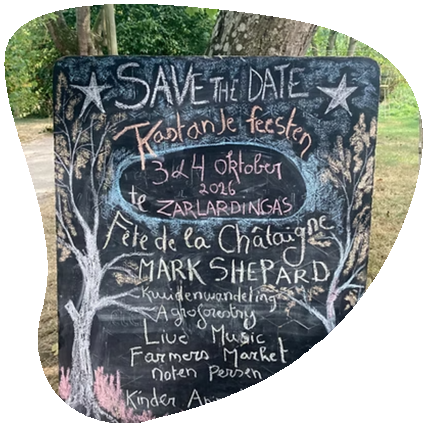 SAVE THE DATE
Kastanje feesten
3&4 Oktober
2026
te ZARLARDINGAS
Fête de la Châtaigne
MARK SHEPARD
Kruidenwandeling
Agroforestry
Live Music
Farmers Market
Noten Persen
Kinder